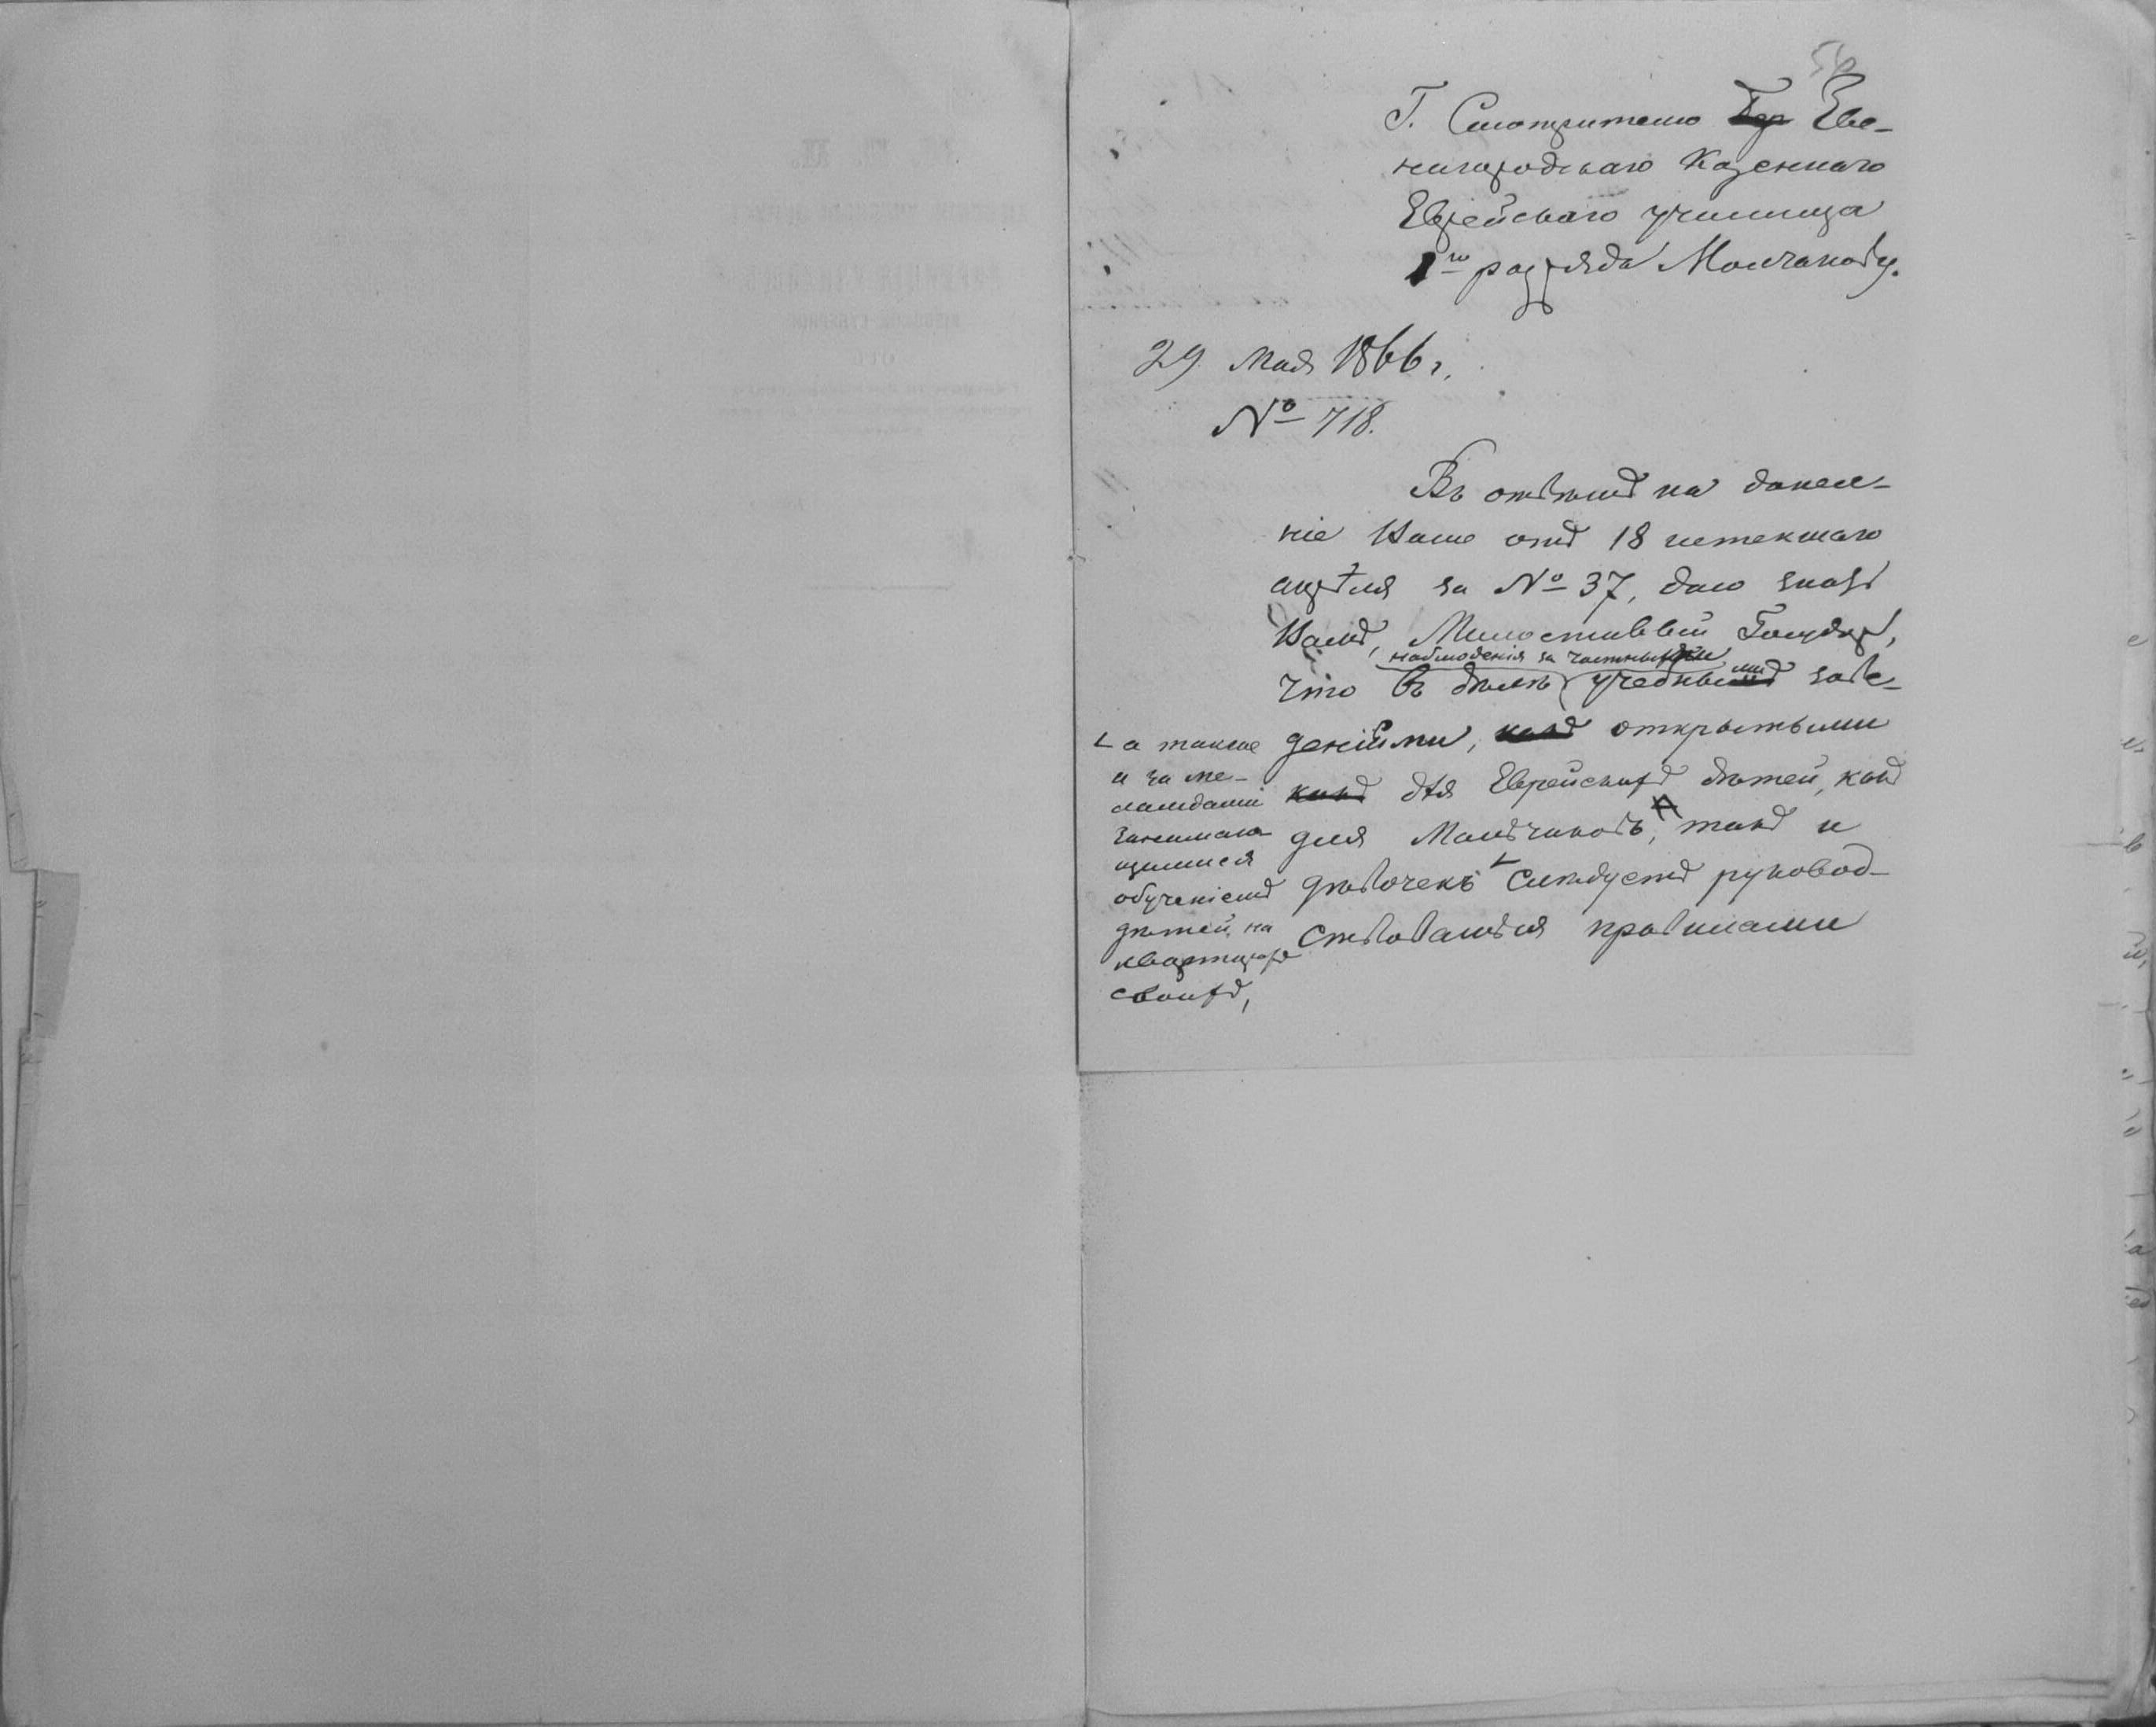 Г. Смотрителю Зве-
нигородскаго Казеннаго
Еврейскаго училища
1го разряда Молчанову.
29 Мая 1866 г.
№ 718.
Въ отвѣтъ на донесе-
ніе Ваше отъ 18 истекшаго
апрѣля за № 37, даю знать
Вамъ, Милостивый Государь,
наблюденія за частными
что въ дѣлѣ учебными заве-
деніями, открытыми
для Еврейскихъ дѣтей, какъ
для Мальчиковъ, такъ и
дѣвочекъ слѣдуетъ руковод-
ствоваться правилами
а также
и за ме-
ламдами
занимаю-
щимися
обученіемъ
дѣтей на
квартирахъ
своихъ,